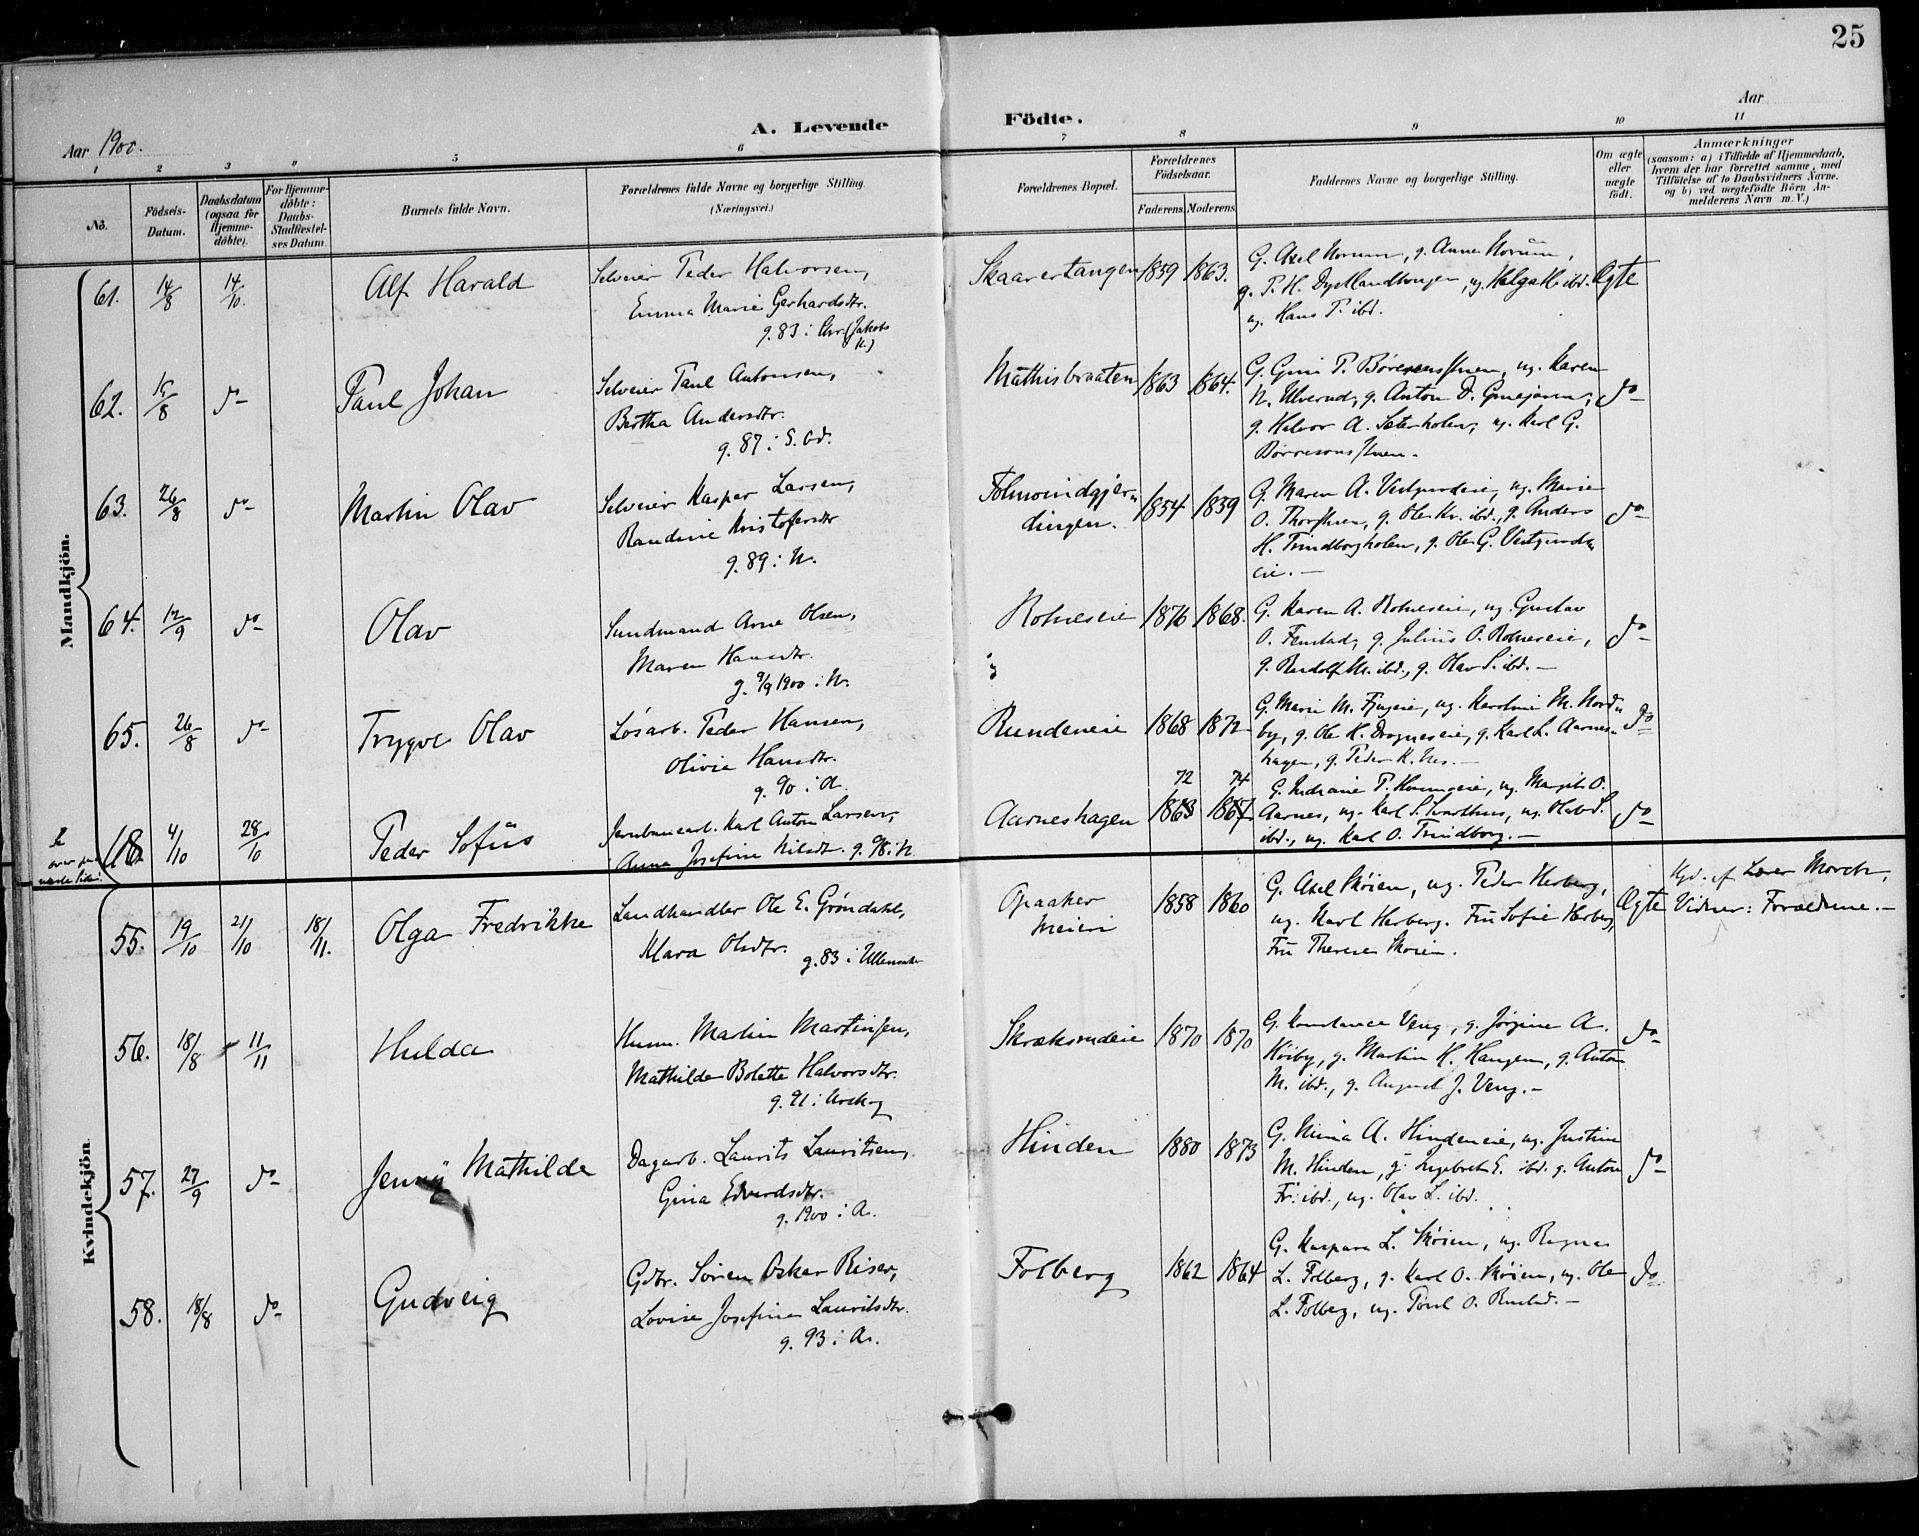 25
Aar 1900.
A. Levende Födte.
Aar
1 2 3 4 5 6 7 8 9 10 11
No.
Födsels-
Datum.
Daabsdatum
(ogsaa for
Hjemme-
döbte).
For Hjemme-
döbte:
Daabs-
Stadfæstel-
ses Datum.
Barnets fulde Navn.
Forældrenes fulde Navne og borgerlige Stilling.
(Næringsvei.)
Forældrenes Bopæl.
Forældrenes
Födselsaar.
Faderens. Moderens.
Faddernes Navne og borgerlige Stilling.
Om ægte
eller
uægte
født.
Anmærkninger
(saasom: a) i Tilfælde af Hjemmedaab,
hvem der har forrettet samme, med
Tilföielse af to Daabsvidners Navne,
og b) ved uægtefödte Börn An-
melderens Navn m. V.)
Mandkjön.
61. 14/8 14/10 Alf Harald
Selveier Peder Halvorsen,
Emma Marie Gerhardsdtr.
g. 83 i Chr. (Jakobs
K.)
Skaarertangen 1859 1863.
G. Axel Norum, g. Anna Norum,
g. P. H. ug. Helga H. ibd.
ug. Hans P. ibd.
Ægte
62. 15/8 do Paul Johan
Selveier Paul Antonsen,
Bertha Andersdtr.
g. 87 i S. Od.
Mathisbraaten 1863 1864.
G. Gina P. ug. Karen
N. Ulverud, g. Anton D.
g. Halvor A. Sæterholen, ug. Karl G.
do
63. 26/8 do Martin Olav
Selveier Kasper Larsen,
Randine Kristofersdtr
g. 89 i N.
dingen. 1854 1859
G. Maren A. ug. Marie
O. g. Ole Kr. ibd., g. Anders
H. Trindborgholen, g. Ole G.
eie. —
do
64. 12/9 do Olav
Sundmand Arne Olsen,
Maren Hansdtr.
g. 9/9 1900 i N.
Rolneseie 1876 1868.
G. Karen A. Rolneseie, ug. Gustav
O. Fenstad, g. Julius O. Rolneseie,
g. Rudolf M. ibd., g. Olav S. ibd. —
do
65. 26/8 do Trygve Olav
Løsarb. Peder Hansen,
Olivia Hansdtr.
g. 90 i A.
Rundeneie 1868 1872
G. Marie M. ug. Karoline M. Nord-
by, g. Ole K. Dragneseie, g. Karl L. Aarnes-
hagen, g. Peder K. Nes. —
do
4/10 28/10 Peder Sofus
Jernbanearb. Karl Anton Larsen,
Anna Josefine Nilsdtr. g. 98 i N
Aarneshagen
72 74
1863 1867
G. P. ug. Margit O.
Aarnes, ug. Karl S. Svarthus, ug. Olab S.
ibd., ug. Karl O. Trindborg. —
do
Kvindekjön.
55. 19/10 21/10 18/11. Olga Fredrikke
Landhandler Ole E. Grøndahl,
Klara Olsdtr.
g. 83 i Ullensaker
Opaaker
Meieri
1858 1860
G. Axel Skøien, ug. Peder Herberg,
ug. Karl Herberg. Fru Sofie Herberg,
Fru Therese Skøien.
Ægte
Hjd. af Lærer Morch,
Vidner: Forældrene. —
56. 18/8 11/11 Hulda
Husm. Martin Martinsen,
Mathilde Bolette Halvorsdtr.
g. 91 i Urskog
Skræksrudeie 1870 1870
G. Konstance Veng, g. Jørgine A.
Kårby, g. Martin H. Haugen, g. Anton
M. ibd., g. August J. Veng. —
do
57. 27/9 do Jenny Mathilde
Dagarb. Laurits Lauritsen,
Gina Edvardsdtr.
g. 1900 i A.
Hinden 1880 1873
G. Mina A. Hindeneie, ug. Justine
M. Hinden, g. Ingebret E. ibd. g. Anton
Fr. ibd., ug. Olav L. ibd.
do
58. 18/8 do Gudveig
Gdbr. Søren Oskar Riser,
Lovise Josefine Lauritsdtr.
g. 93 i A.
Folberg 1862 1864
G. Kaspara L. Skøien, ug. Ragna
L. Folberg, g. Karl O. Skøien, ug. Ole
L. Folberg, ug. Poul O. Rustad. —
do